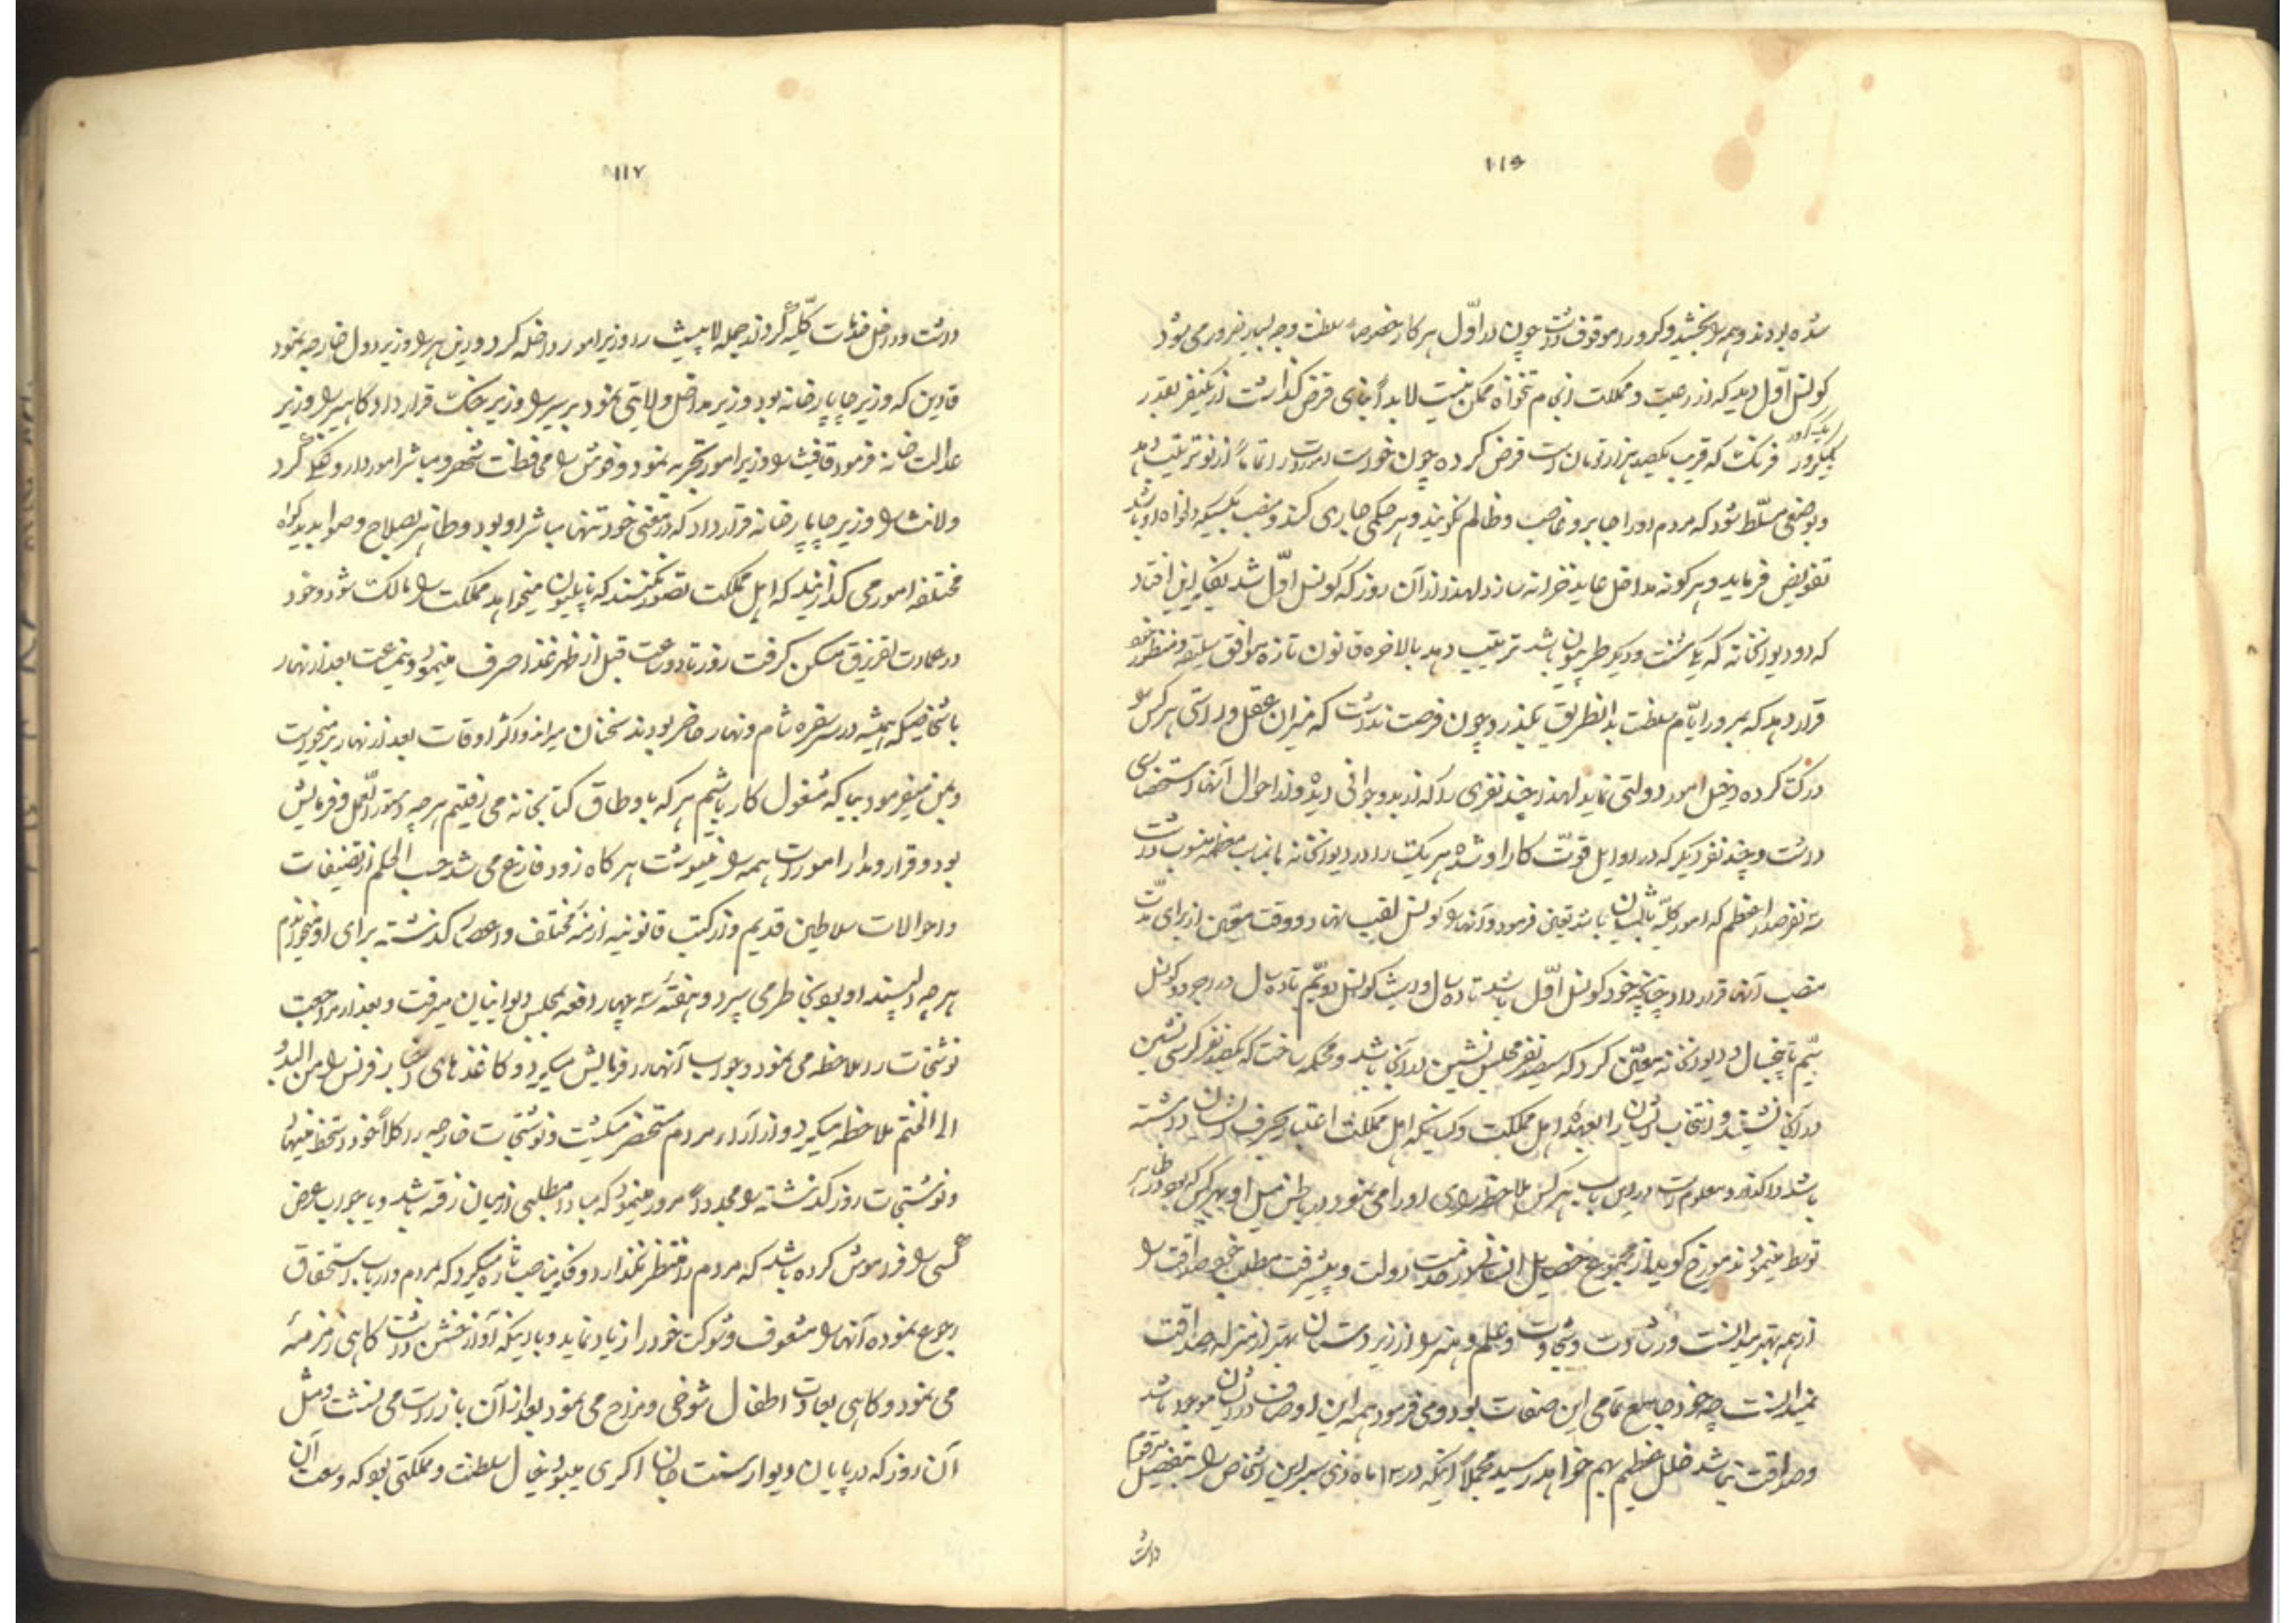 ۱۱۶
شده بودند و همه را بخشید و کرور را موقوف داشت چون در اوّل هر کار خصوصاً سلطنت وجه بسیار ضرور می شود
کونسل اوّل دید که از رعیت و مملکت انجام تنخواه ممکن نیست لابد بنای قرض گذاشت از یکنفر بقدر
یکرور فرنک که قریب یکصد هزار تومان است قرض کرده چون خواست امورات را تماماً از نو ترتیب دهد
و بوضعی مسلّط شود که مردم او را جابر و غاصب و ظالم نگویند و هر حکمی جاری کند و منصب بکسیکه دلخواه او باشد
تفویض فرماید و هر گونه مداخل عاید خزانه سازد لهذا از آن روز که کونسل اوّل شد بفکر این افتاد
که دو دیوانخانه که یکی سنت و دیگر طریبون باشد ترتیب دهد بالاخره قانون تازه موافق سلیقه و منظور خود
قرار دهد که بمرور ایّام سلطنت بدانطریق بگذرد و چون فرصت نداشت که میزان عقل و راستی هر کس را
درک کرده دخیل امور دولتی نماید لهذا چند نفری را که از بدو جوانی دیده و از احوال آنها استحضاری
داشت و چند نفر دیگر که در اوایل قوّت کار او شده هر یک را در دیوانخانه بمناصب معظمه منسوب داشت
سه نفر صدر اعظم که امور کلیّه با ایشان باشد تعیین فرمود و آنها را کونسل لقب نهاد و وقت معیّن از برای مدّت
منصب آنها قرار داد چنانچه خود کونسل اوّل باشد تا ده سال و دیگری کونسل دویّم تا ده سال و دیگر کونسل
سیّم تا پنجسال و دیوانخانه معیّن کرد که سیصد نفر مجلس نشین در آن باشد و محکمه ساخت که یکصد نفر کرسی نشین
در آن نشیند و انتخاب ایشان را بعهده اهل مملکت و کسانیکه اهل مملکت اعتبار بحرف ایشان داشته
باشند واگذارد و معلوم است در این باب هر کس ملاحظه او را می نمود در باطن میل او بهر کس که بود در ظاهر
توسط مینمودند مورّخ گوید از مجموع خصایل انسانی در خدمت دولت و پیشرفت مطلب خود صداقت را
از همه بهتر میدانست و رشادت و شجاعت و علم و هنر را از زیردستان بهتر از منزله صداقت
نمیدانست چه خود جامع تمامی این صفات بود و می فرمود همه این اوصاف در ایشان موجود باشد
و صداقت نباشد خلل عظیم بهم خواهد رسید مجملاً اینکه در ۱۳ ماه این اشخاص را بتفصیل مرقوم
داشت
۱۱۷
داشت و داخل خدمات کلیّه گردیدند جمله لاپیث را وزیر امور داخله کرد و را وزیر دول خارجه نمود
قادین که وزیر چاپارخانه بود وزیر مداخل ولایتی نمود برسیر را وزیر جنگ قرار داد کامبسر را وزیر
عدالت خانه فرمود قافیث را وزیر امور بحریه نمود و فوش را محافظت شهر و مباشر امور کرد
و لانث را وزیر چاپارخانه قرار داد که در معنی خود تنها مباشر او بود و ظاهر بصلاح و صوابدید گروه
مختلفه امور می گذرانید که اهل مملکت تصوّر نکنند که ناپلیون میخواهد مملکت را مالک شود و خود
در عمارت مسکن گرفت روز تا دو ساعت قبل از ظهر غذا صرف مینمود و نیمساعت بعد از نهار
با اشخاصیکه همیشه در سفره شام و نهار حاضر بودند سخنان میراند و اکثر اوقات بعد از نهار برمیخواست
و بمن میفرمود بیا که مشغول کار باشیم هر گاه باوطاق کتابخانه می رفتیم هر چه دستور العمل و فرمایش
بود و قرار و مدار امورات همه را مینوشت هر گاه زود فارغ می شد حسب الحکم از تصنیفات
و احوالات سلاطین قدیم و از کتب قانونیه ازمنه مختلف و اعصار گذشته برای او میخواندم
هر چه دلپسند او بود بخاطر می سپرد و هفته سه چهار دفعه بمجلس دیوانیان میرفت و بعد از مراجعت
نوشتجات را ملاحظه می نمود و جواب آنها را فرمایش میکرد و کاغذهای اخبار فرانس را من البدو
الی الختم ملاحظه میکرد و از آراء مردم مستحضر میگشت و نوشتجات خارجه را کلاً خود دستخط مینهاد
و نوشتجات روز گذشته را مجدداً مرور مینمود که مبادا مطلبی از میان رفته باشد و یا جواب عرض
کسی را فراموش کرده باشد که مردم را منتظر نگذارد و میکرد که مردم در باب استحقاق
رجوع نموده آنها را مشعوف و شوکت خود را زیاد نماید و با اینکه آواز خشن داشت گاهی زمزمه
می نمود و گاهی بعادت اطفال شوخی و مزاح می نمود بعد از آن باز راست می نشست و مثل
آن روز که در پایان دیوار سنت جان اکری میبود بخیال سلطنت و مملکتی بود که وسعت آن